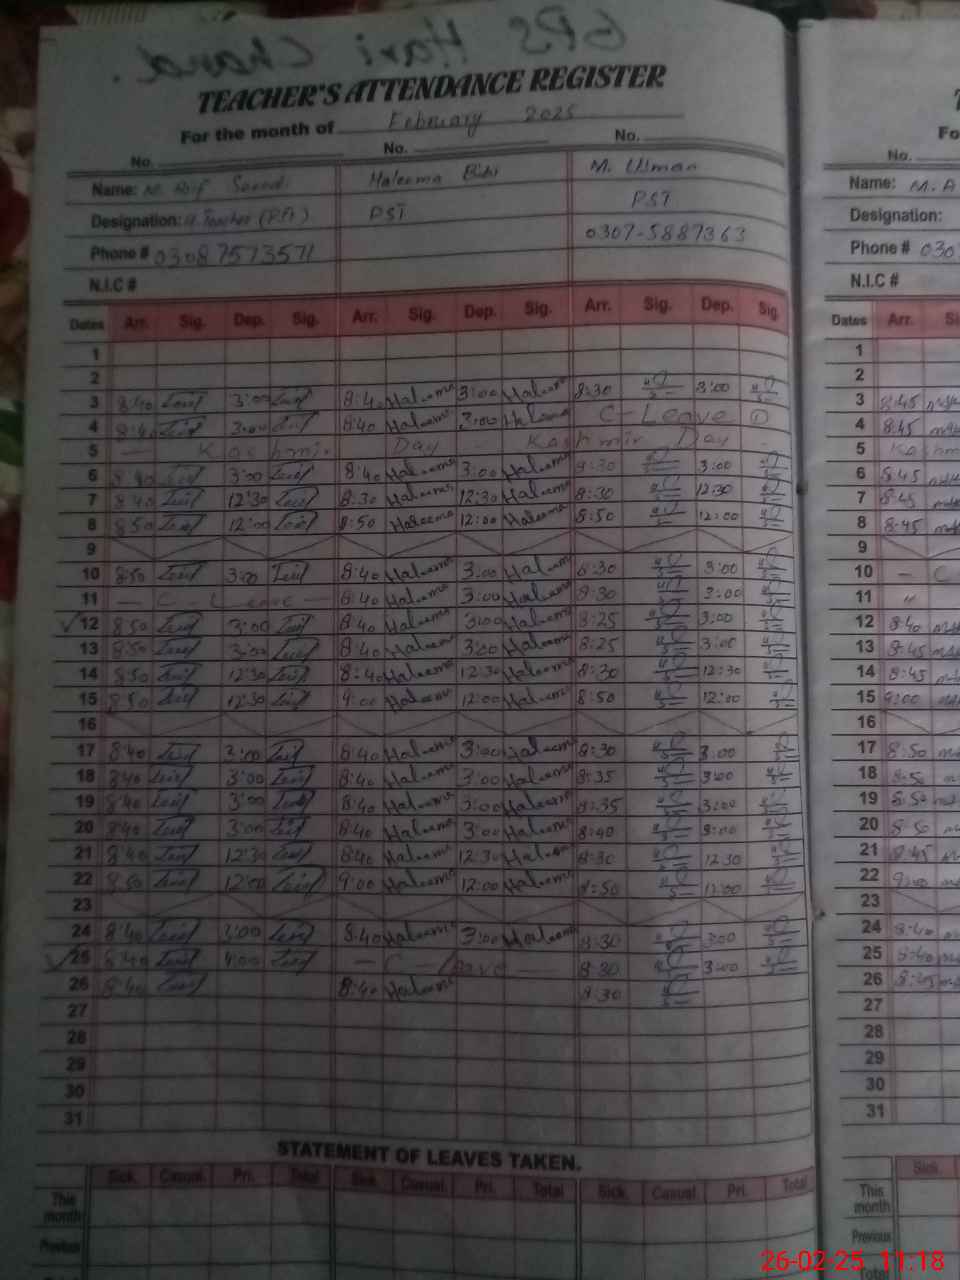 GPS Hari Chand.
TEACHER'S ATTENDANCE REGISTER
For the month of February 2025
No. No. No.
Name: M. Saeedi Haleema Bibi M. Usman
Designation: H.Teacher PST PST
Phone # 03087573571 0307-5887363
N.I.C #
Dates Arr. Sig. Dep. Sig. Arr. Sig. Dep. Sig. Arr. Sig. Dep. Sig.
1
2
3 8:40 3:00 8:40 Haleema 3:00 Haleema 8:30 3:00
4 8:40 3:00 8:40 Haleema 3:00 Haleema C-Leave 1
5 — Kashmir Day - Kashmir Day -
6 8:40 3:00 8:40 Haleema 3:00 Haleema 8:30 3:00
7 8:40 12:30 8:30 Haleema 12:30 Haleema 8:30 12:30
8 8:50 12:00 8:50 Haleema 12:00 Haleema 8:50 12:00
9
10 8:50 3:00 8:40 Haleema 3:00 Haleema 8:30 3:00
11 — C - Leave — 8:40 Haleema 3:00 Haleema 8:30 3:00
12 8:50 3:00 8:40 Haleema 3:00 Haleema 8:25 3:00
13 8:50 3:00 8:40 Haleema 3:00 Haleema 8:25 3:00
14 8:50 12:30 8:40 Haleema 12:30 Haleema 8:30 12:30
15 8:50 12:30 9:00 Haleema 12:00 Haleema 8:50 12:00
16
17 8:40 3:00 8:40 Haleema 3:00 Haleema 8:30 3:00
18 8:40 3:00 8:40 Haleema 3:00 Haleema 8:35 3:00
19 8:40 3:00 8:40 Haleema 3:00 Haleema 8:35 3:00
20 8:40 3:00 8:40 Haleema 3:00 Haleema 8:40 3:00
21 8:40 12:30 8:40 Haleema 12:30 Haleema 8:30 12:30
22 8:50 12:00 9:00 Haleema 12:00 Haleema 8:50 12:00
23
24 8:40 8:40 Haleema 3:00 Haleema 8:30 3:00
25 8:40 — C - Leave — 8:30 3:00
26 8:40 8:40 Haleema 8:30
27
28
29
30
31
STATEMENT OF LEAVES TAKEN.
Sick. Casual. Pri. Total Sick. Casual. Pri. Total Sick. Casual. Pri. Total
This month
Previous
Fo
No.
Name: M. A
Designation:
Phone # 030
N.I.C #
Dates Arr.
1
2
3 8:45
4 8:45
5
6 8:45
7 8:45
8 8:45
9
10 - C
11 "
12 8:40
13 8:45
14 8:45
15 9:00
16
17 8:50
18 8:50
19 8:50
20 8:50
21 8:45
22 9:00
23
24 8:40
25 8:40
26 8:45
27
28
29
30
31
Sick.
This month
Previous
Total
26-02-25 11:18